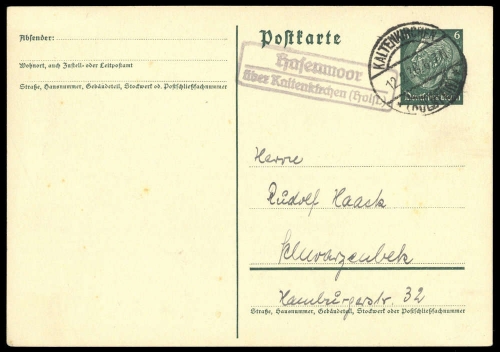 Absender:
Wohnort, auch Zustell- oder Leitpostamt
Straße, Hausnummer, Gebäudeteil, Stockwerk od. Postschließfachnummer
Postkarte
Hasenmoor
über Kaltenkirchen (Holst)
KALTENKIRCHEN
12
(HOLSTEIN)
6
Deutsches Reich
Herrn
Rudolf Haack
Schwarzenbek
Hamburgerstr. 32
Straße, Hausnummer, Gebäudeteil, Stockwerk oder Postschließfachnummer